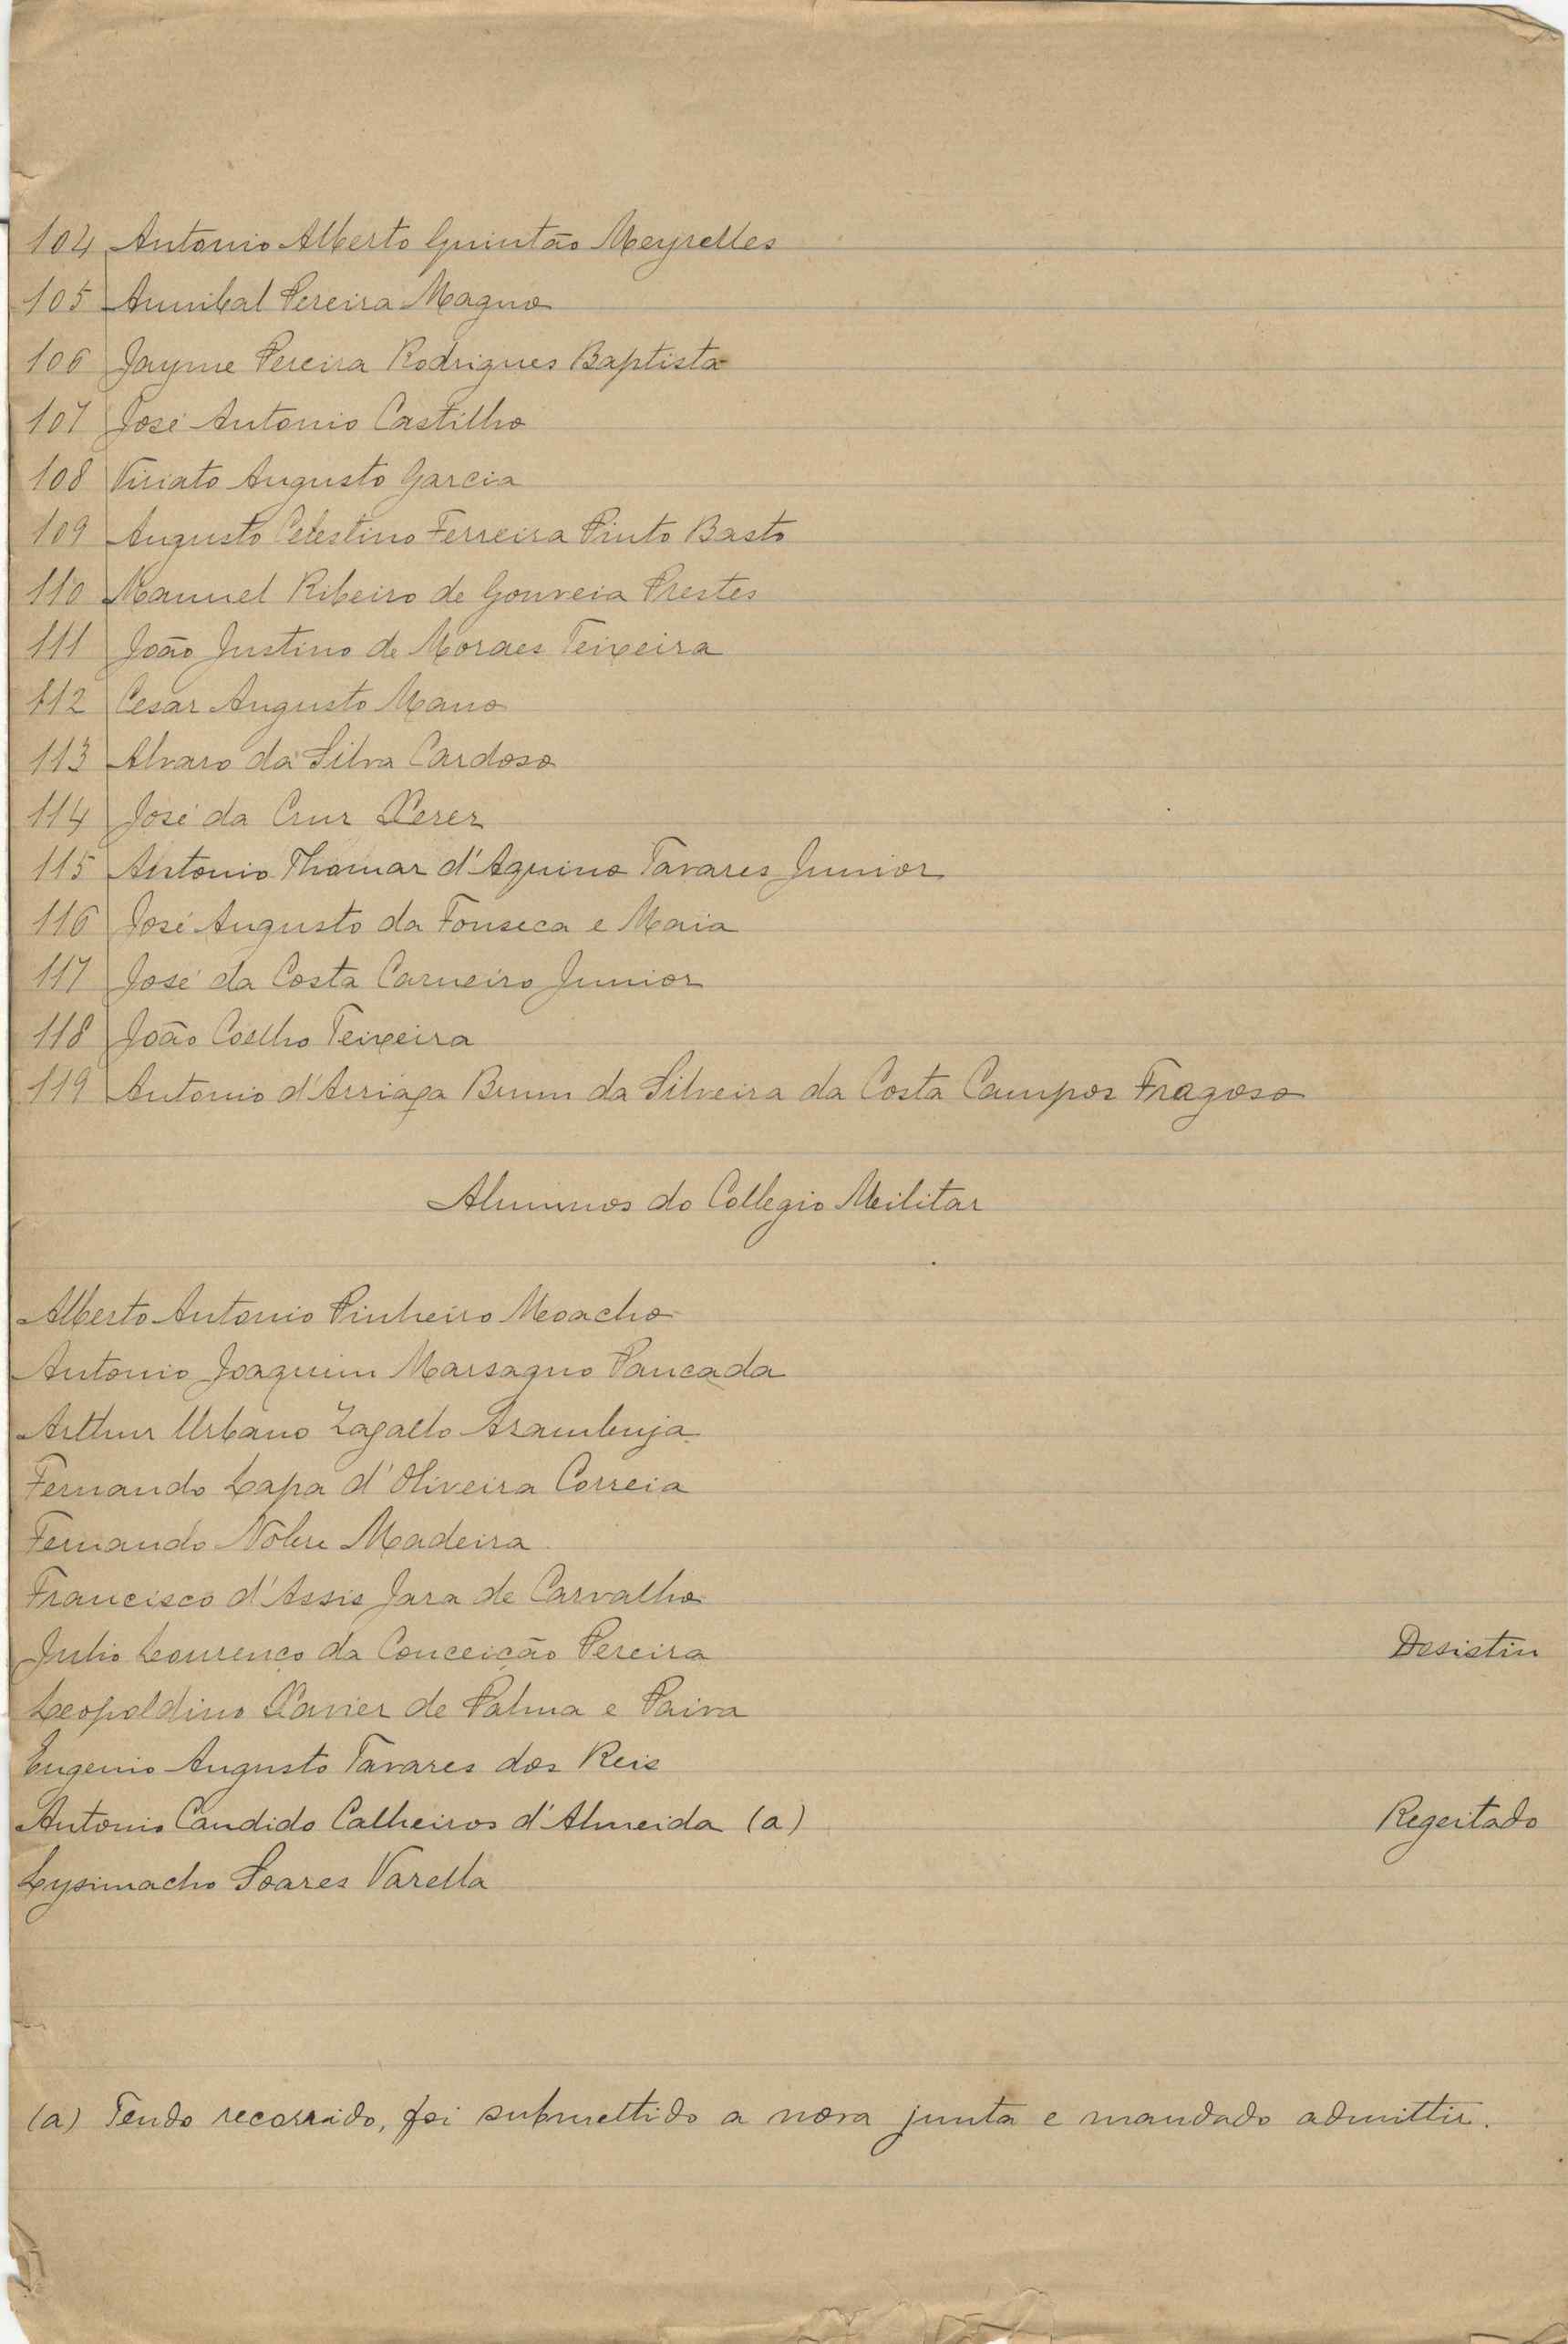 104 Antonio Alberto Quintão Meyrelles
105 Annibal Pereira Magno
106 Jayme Pereira Rodrigues Baptista
107 José Antonio Castilho
108 Viriato Augusto Garcia
109 Augusto Celestino Ferreira Pinto Basto
110 Manuel Ribeiro de Gouveia Prestes
111 João Justino de Moraes Teixeira
112 Cesar Augusto Mano
113 Alvaro da Silva Cardoso
114 José da Cruz Xerez
115 Antonio Thomaz d'Aquino Tavares Junior
116 José Augusto da Fonseca e Maia
117 José da Costa Carneiro Junior
118 João Coelho Teixeira
119 Antonio d'Arriaga Brum da Silveira da Costa Campos Fragoso
Alumnos do Collegio Militar
Alberto Antonio Pinheiro Moacho
Antonio Joaquim Marsagno Pancada
Arthur Urbano Zagallo Azambuja
Fernando Lapa d'Oliveira Correia
Fernando Nobre Madeira
Francisco d'Assis Jara de Carvalho
Julio Lourenço da Conceição Pereira Desistiu
Leopoldino Xavier de Palma e Paiva
Eugenio Augusto Tavares dos Reis
Antonio Candido Calheiros d'Almeida (a) Regeitado
Lysimacho Soares Varella
(a) Tendo recorrido, foi submettido a nova junta e mandado admittir.